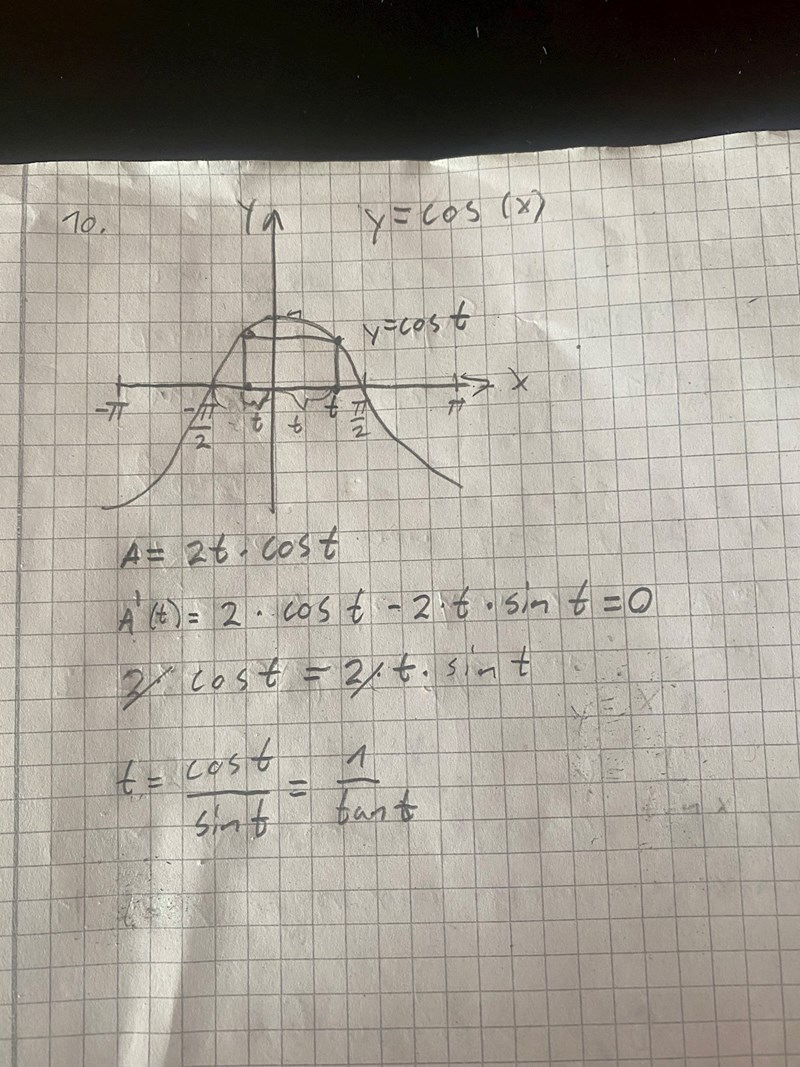 10.
Y
y = cos (x)
1
y = cos t
x
-π
-π/2
t
t
t
π/2
π
A = 2t · cos t
A'(t) = 2 · cos t - 2 · t · sin t = 0
2 · cos t = 2 · t · sin t
t = cos t / sin t = 1 / tan t